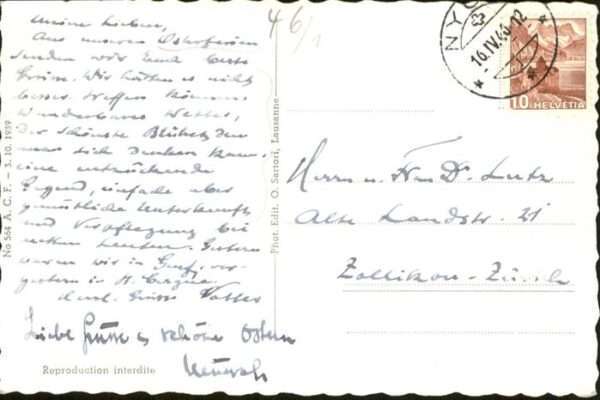 Meine Lieben,
Aus unseren Osterferien
senden wir Euch beste
Grüsse. Wir hätten es nicht
besser treffen können.
Wunderbares Wetter,
der schönste Blühet, den
man sich denken kann.
eine entzückende
Gegend, einfache aber
gemütliche Unterkunft
und Verpflegung bei
netten Leuten. Gestern
waren wir in Genf, vor-
gestern in St. Cergue.
Herzl. Grüsse Vatter
Liebe Grüsse & schöne Ostern
46/1
NYON
16.IV.46.12
10 HELVETIA
Herrn u. Frau Dr. Lutz
Alte Landstr. 21
Zollikon-Zürich
No 564 A. C. F. - 3. 10. 1939
Phot. Edit. O. Sartori, Lausanne
Reproduction interdite